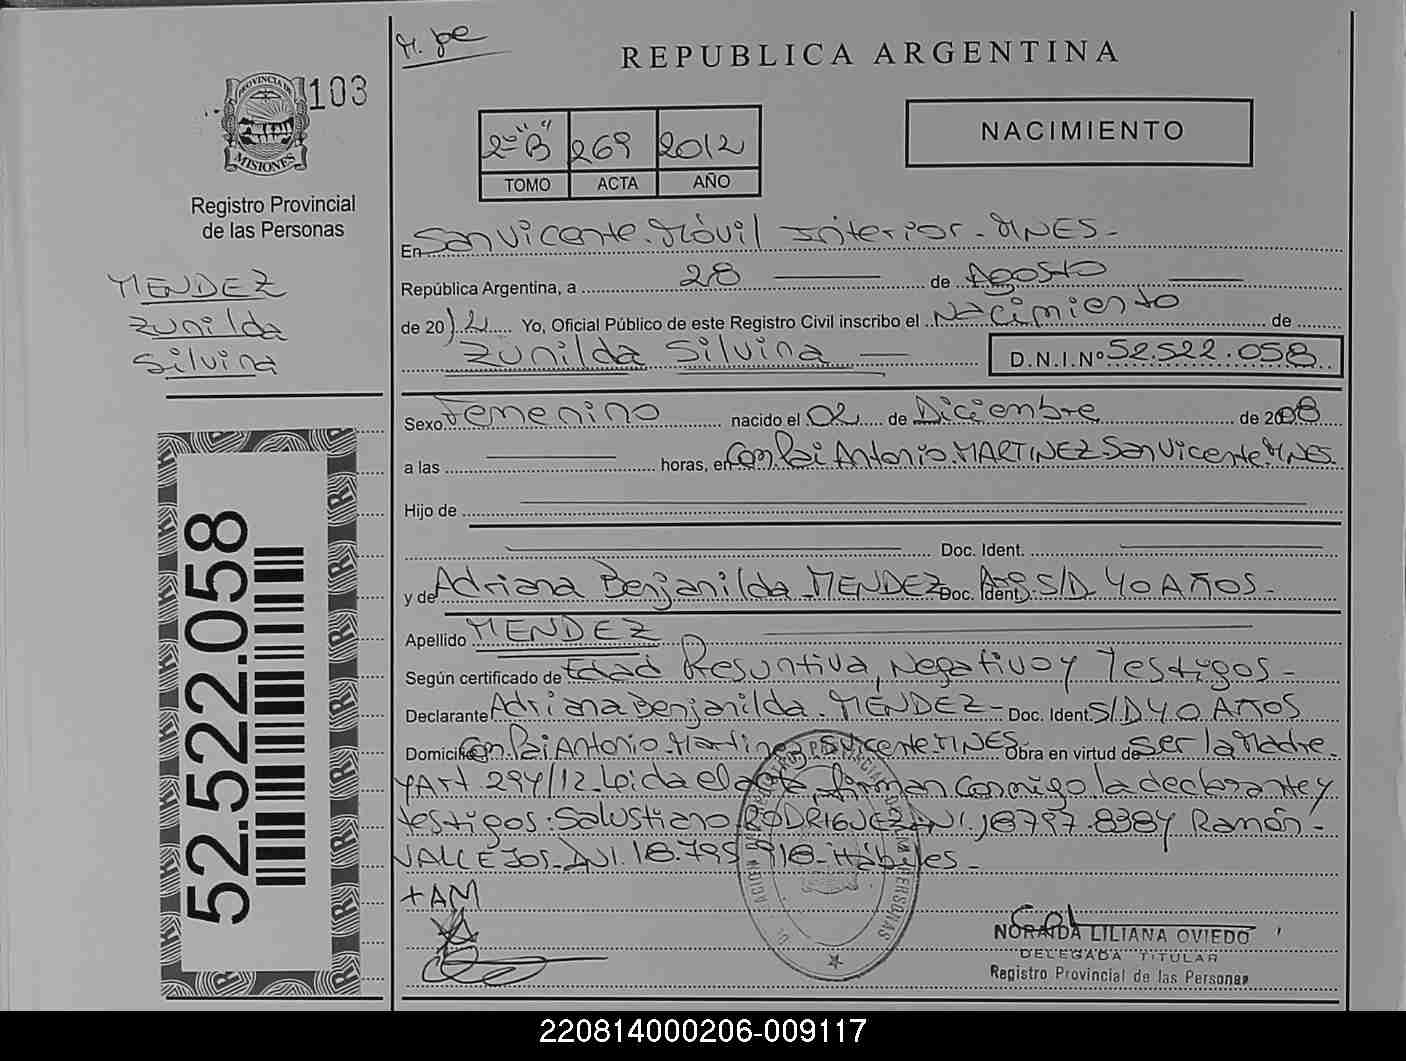 M. pe
REPUBLICA ARGENTINA
PROVINCIA DE
MISIONES
103
Registro Provincial
de las Personas
MENDEZ
Zunilda
Silvina
52.522.058
2º "B" 269 2012
TOMO ACTA AÑO
NACIMIENTO
En San Vicente. Móvil Interior - MNES -
República Argentina, a 28 de Agosto
de 2012 Yo, Oficial Público de este Registro Civil inscribo el Nacimiento de
Zunilda Silvina D.N.I.Nº 52.522.058
Sexo Femenino nacido el 02 de Diciembre de 2008
a las horas, en Com. Pai Antonio. MARTINEZ San Vicente. MNES.
Hijo de
Doc. Ident.
y de Adriana Benjanilda MENDEZ Doc. Ident. Arg. S/D 40 AÑOS -
Apellido MENDEZ
Según certificado de Edad Resuntiva, Negativo y Testigos -
Declarante Adriana Benjanilda. MENDEZ - Doc. Ident. S/D 40 AÑOS
Domicilio Com. Pai Antonio. Martinez S. Vicente. MNES. Obra en virtud de Ser la Madre.
y Art. 294/12. Leida el acta, firman conmigo la declarante y
testigos: Salustiano RODRIGUEZ DNI. 18797.838 y Ramón -
VALLEJOS. DNI. 18.795 918 - Hábiles -
+AM
NORAIDA LILIANA OVIEDO
DELEGADA TITULAR
Registro Provincial de las Personas
220814000206-009117